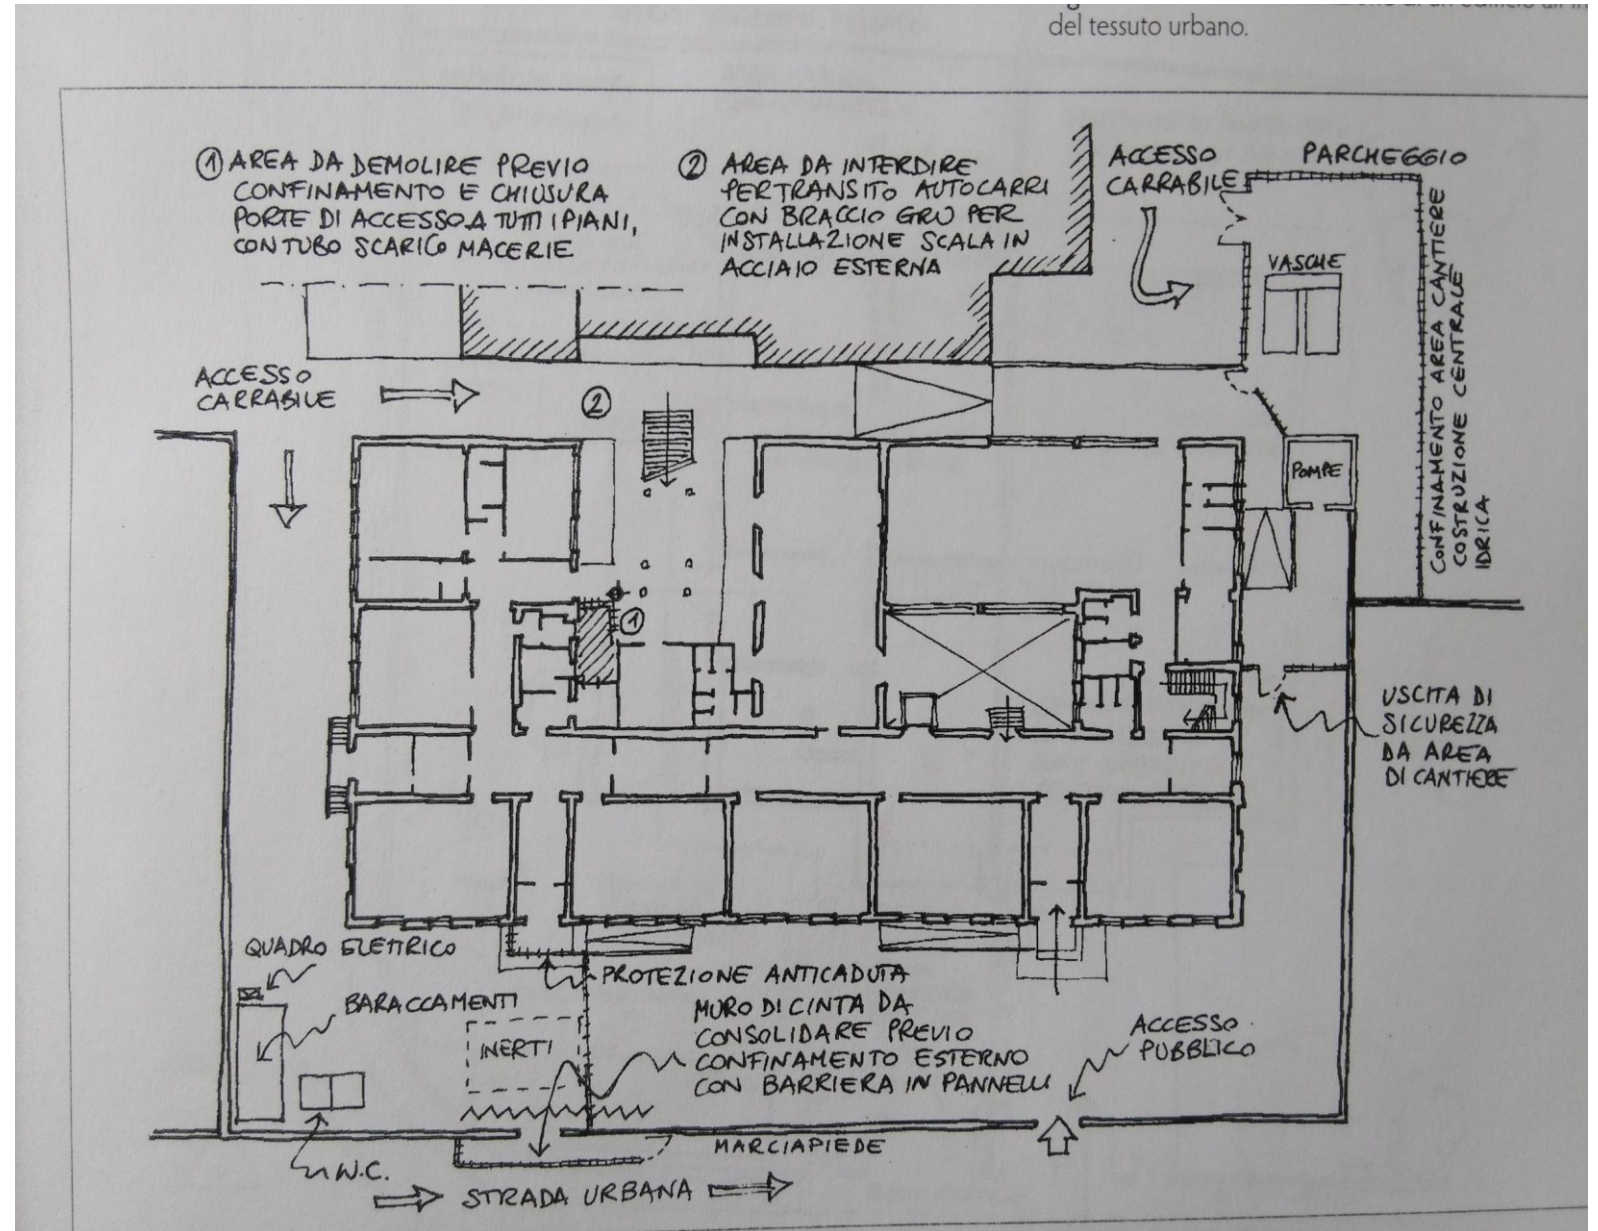 del tessuto urbano.
① AREA DA DEMOLIRE PREVIO
CONFINAMENTO E CHIUSURA
PORTE DI ACCESSO A TUTTI I PIANI,
CON TUBO SCARICO MACERIE
② AREA DA INTERDIRE
PER TRANSITO AUTOCARRI
CON BRACCIO GRU PER
INSTALLAZIONE SCALA IN
ACCIAIO ESTERNA
ACCESSO
CARRABILE
PARCHEGGIO
VASCHE
CONFINAMENTO AREA CANTIERE
COSTRUZIONE CENTRALE
IDRICA
ACCESSO
CARRABILE
②
POMPE
①
USCITA DI
SICUREZZA
DA AREA
DI CANTIERE
QUADRO ELETTRICO
BARACCAMENTI
PROTEZIONE ANTICADUTA
MURO DI CINTA DA
CONSOLIDARE PREVIO
CONFINAMENTO ESTERNO
CON BARRIERA IN PANNELLI
INERTI
ACCESSO
PUBBLICO
MARCIAPIEDE
W.C.
STRADA URBANA